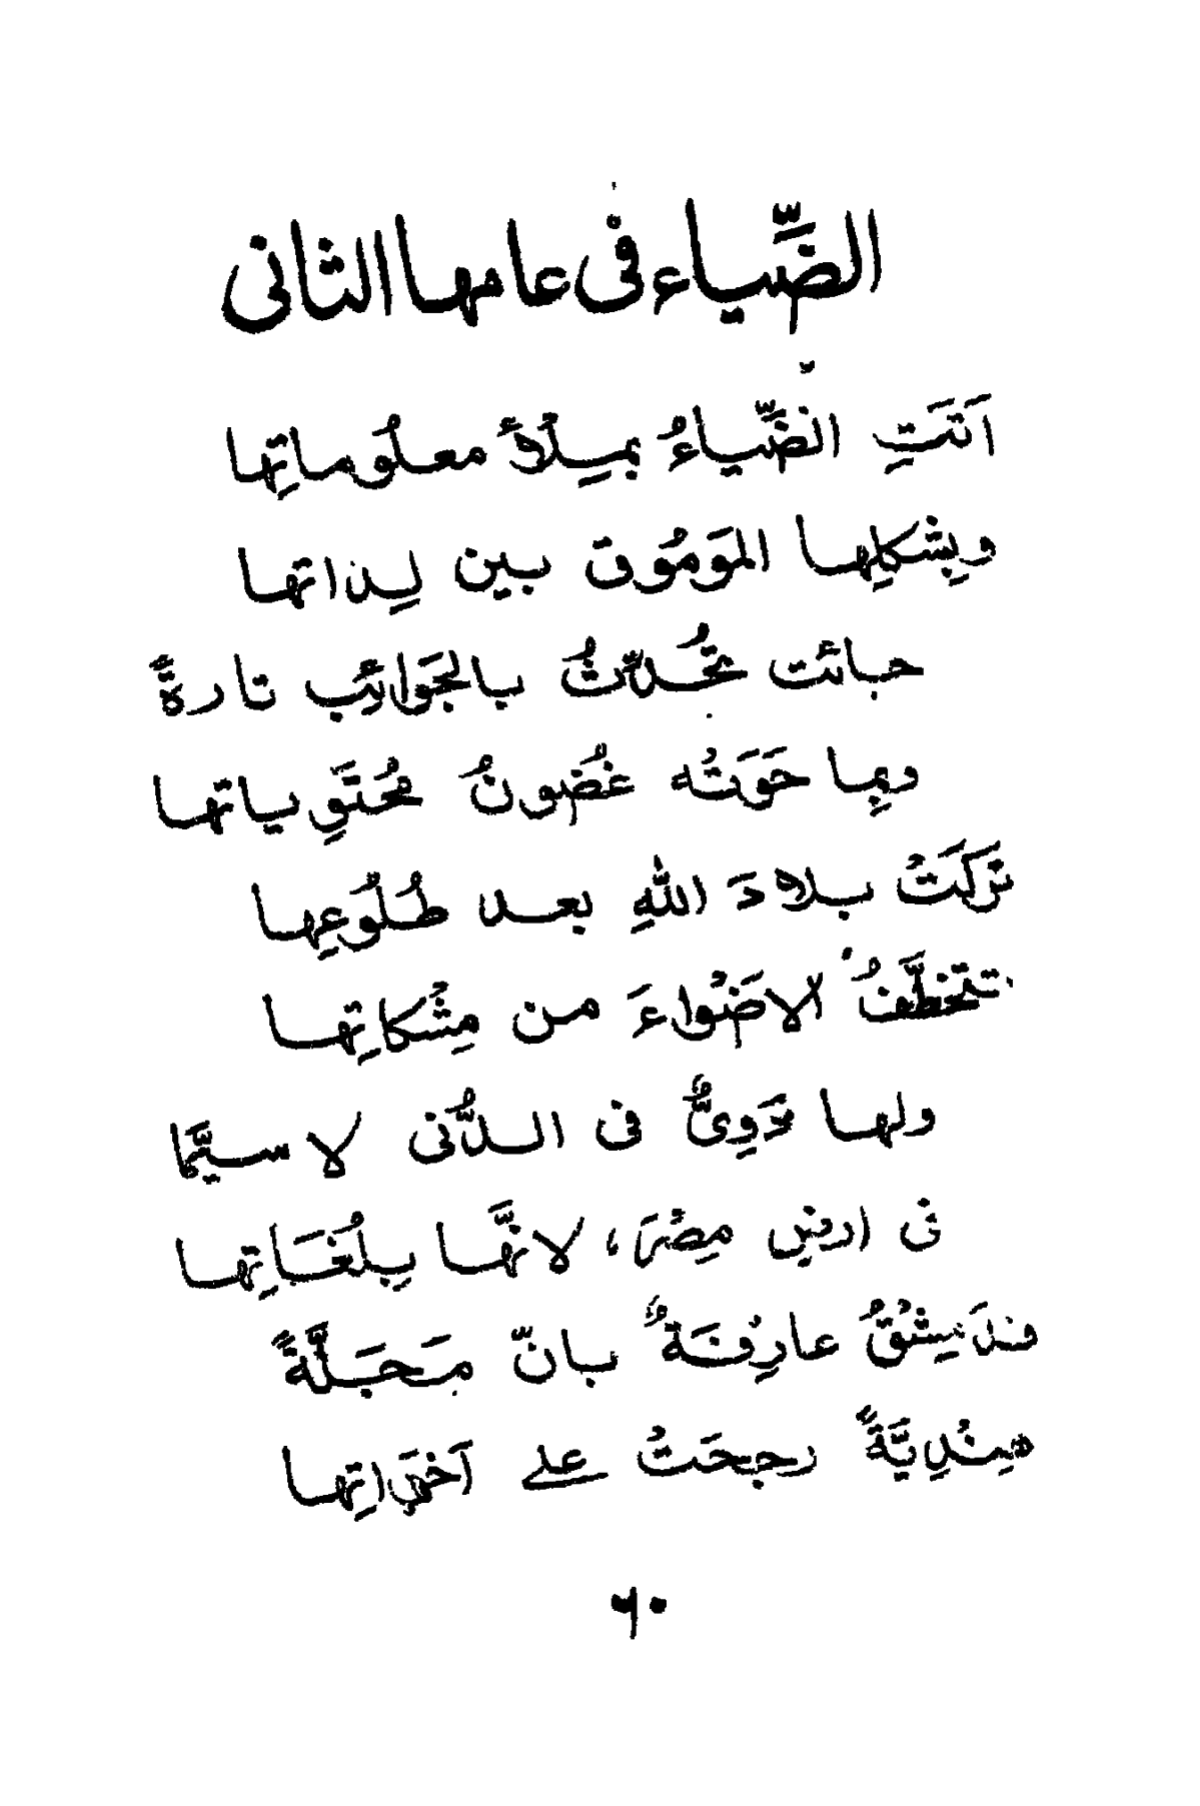 الضِّياء في عامها الثاني
اَتَتِ الضِّياءُ بمِيلَادِ معلُوماتِها
وبِشكلِها المَومُوق بين لِداتها
جائت تُحدِّثُ بالجَوائِب تارةً
وبِما حَوَتْه غُضونُ مُحتَوِياتها
تَرَكَتْ بلادَ اللهِ بعد طُلُوعِها
تتخطَّفُ الاضْواءَ من مِشْكاتِها
ولها دَوِىٌّ فى الدُّنى لا سيَّما
فى ارضِ مِصْرَ، لانَّها بِلُغَاتِها
فدَمِشْقُ عارِفَةٌ بانّ مَجَلَّةً
هِنْدِيَّةً رجحَتْ على اَخَواتِها
٦٠